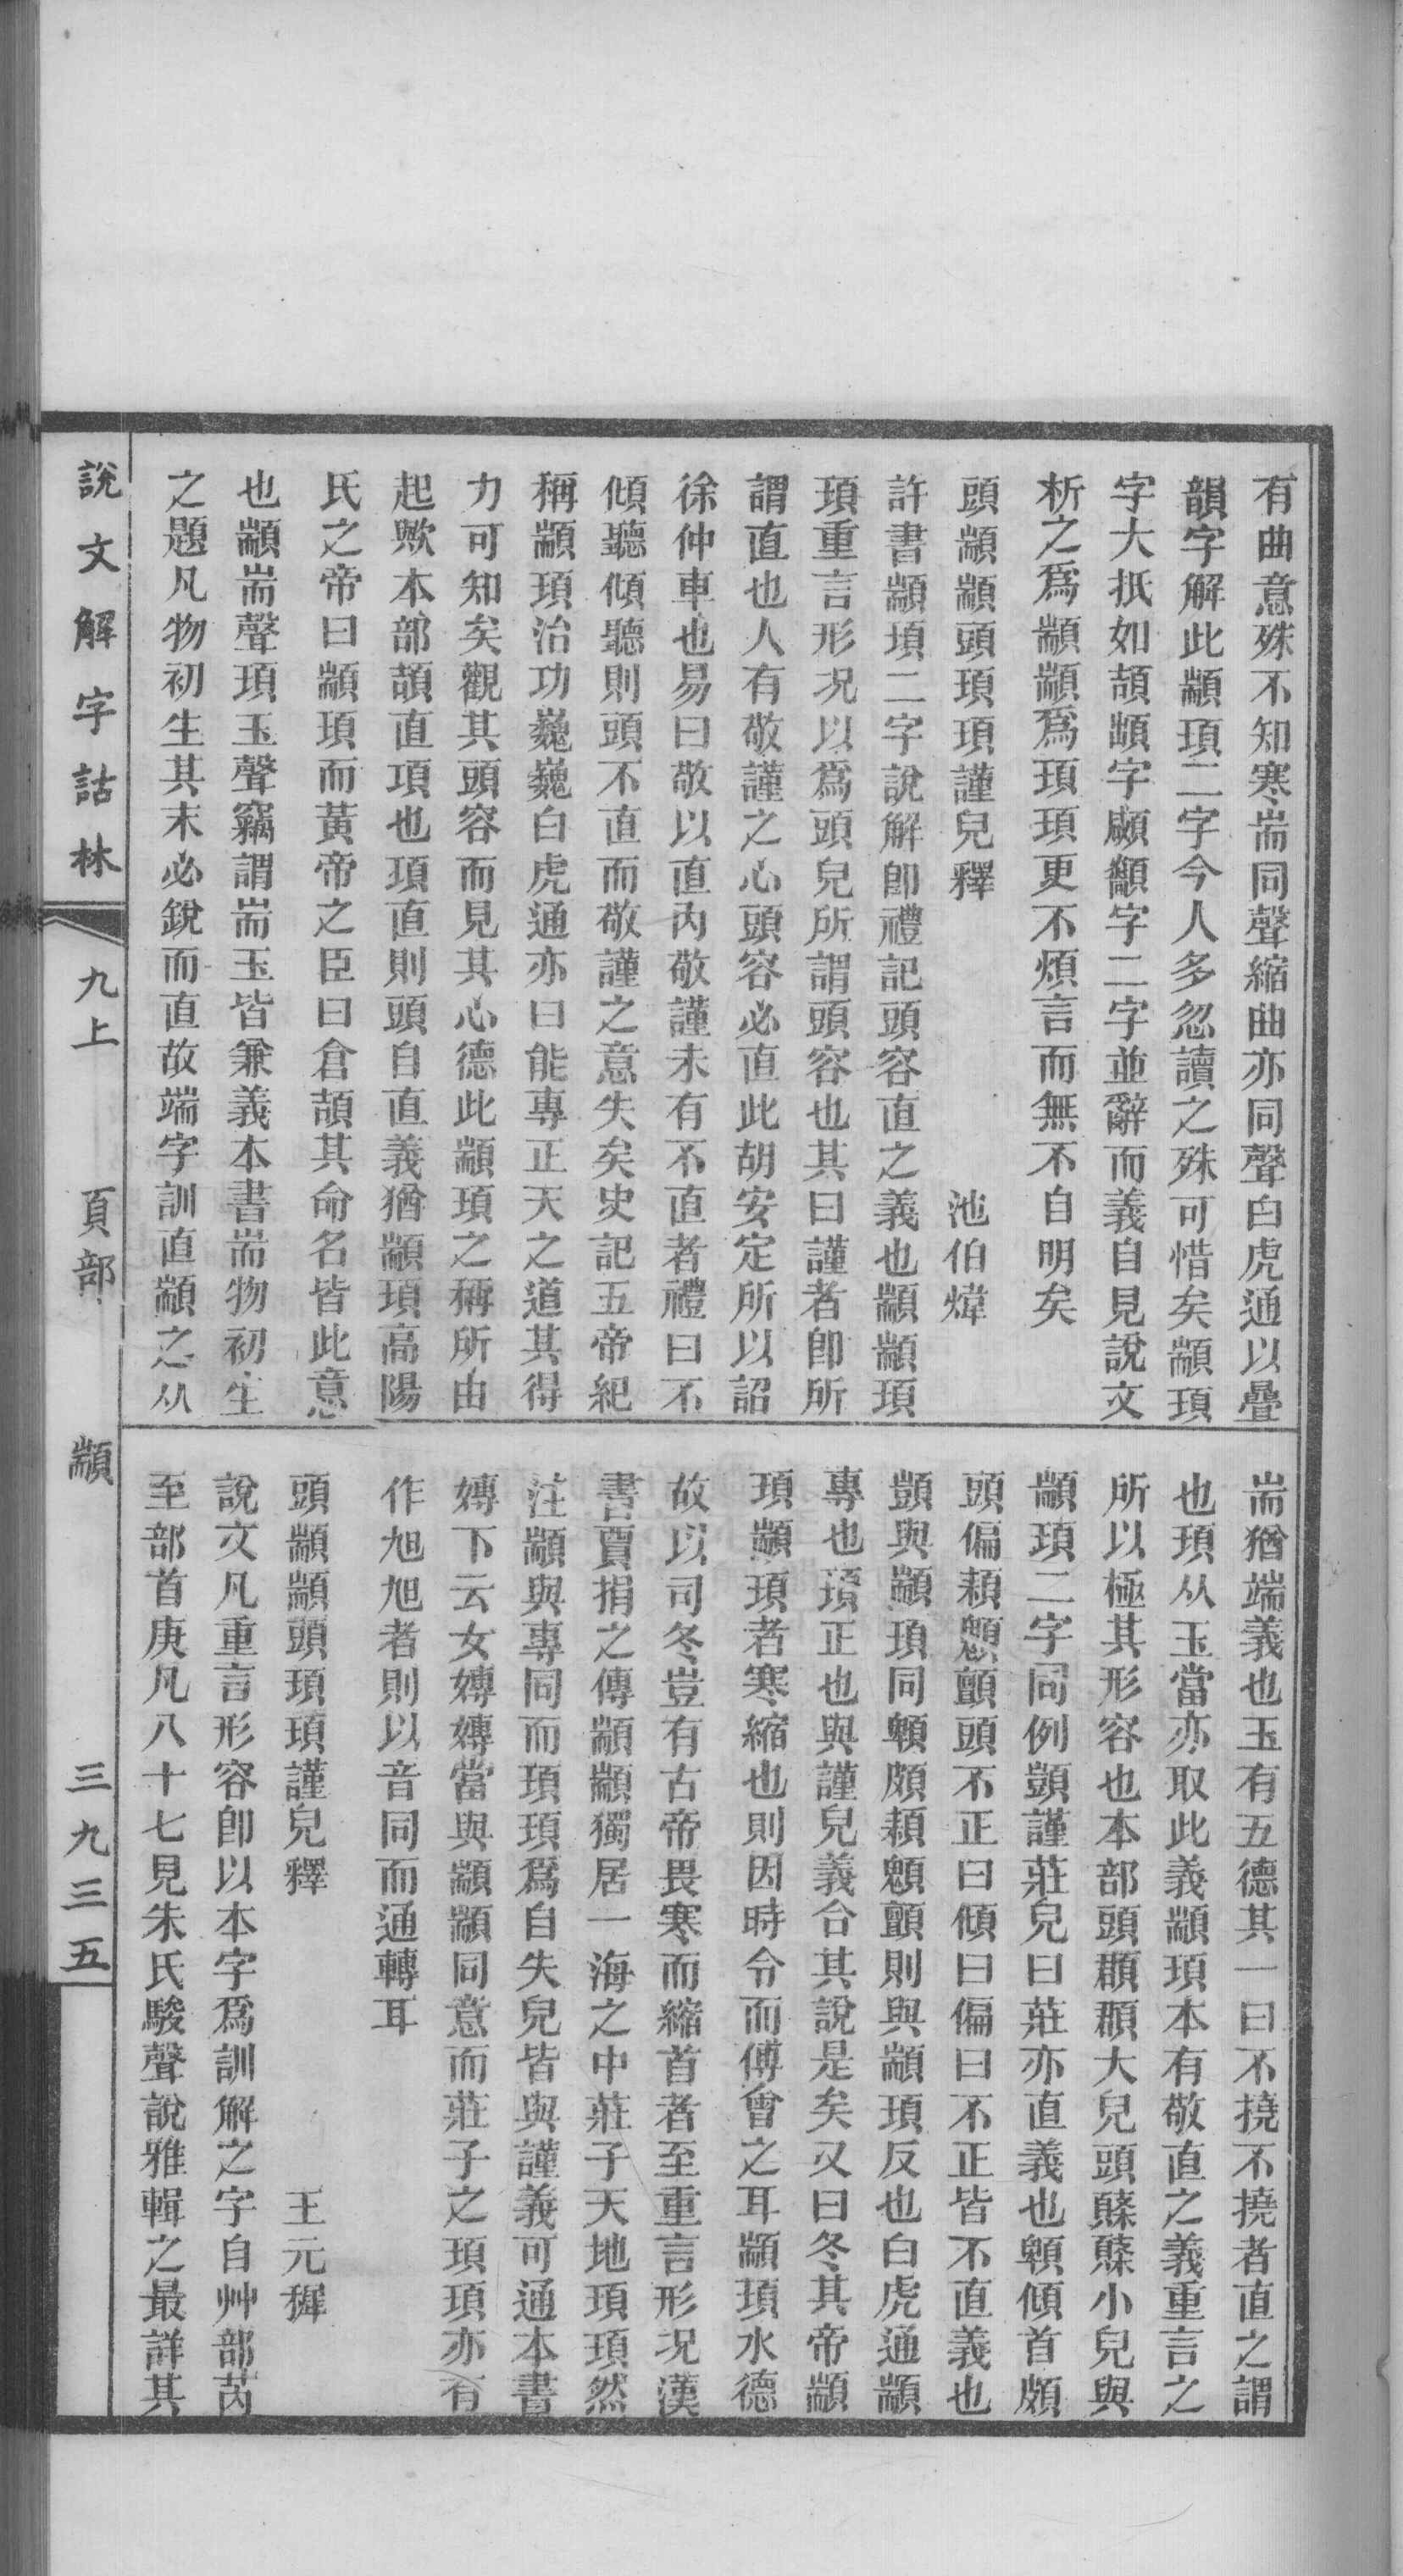 有曲意殊不知寒耑同聲縮曲亦同聲白虎通以疊
韻字解此顓頊二字今人多忽讀之殊可惜矣顓頊
字大抵如頡䪼字顑顲字二字並辭而義自見說文
析之爲顓顓爲頊頊更不煩言而無不自明矣
頭顓顓頭頊頊謹皃釋 池伯煒
許書顓頊二字說解卽禮記頭容直之義也顓顓頊
頊重言形况以爲頭皃所謂頭容也其曰謹者卽所
謂直也人有敬謹之心頭容必直此胡安定所以詔
徐仲車也易曰敬以直內敬謹未有不直者禮曰不
傾聽傾聽則頭不直而敬謹之意失矣史記五帝紀
稱顓頊治功巍巍白虎通亦曰能專正天之道其得
力可知矣觀其頭容而見其心德此顓頊之稱所由
起歟本部頡直項也項直則頭自直義猶顓頊高陽
氏之帝曰顓頊而黃帝之臣曰倉頡其命名皆此意
也顓耑聲頊玉聲竊謂耑玉皆兼義本書耑物初生
之題凡物初生其末必銳而直故端字訓直顓之从
耑猶端義也玉有五德其一曰不撓不撓者直之謂
也頊从玉當亦取此義顓頊本有敬直之義重言之
所以極其形容也本部頭顝顝大皃頭䫉䫉小皃與
顓頊二字同例顗謹莊皃曰莊亦直義也頃傾首頗
頭偏頛顋顫頭不正曰傾曰偏曰不正皆不直義也
顗與顓頊同頃頗頛顋顫則與顓頊反也白虎通顓
專也頊正也與謹皃義合其說是矣又曰冬其帝顓
頊顓頊者寒縮也則因時令而傅會之耳顓頊水德
故以司冬豈有古帝畏寒而縮首者至重言形况漢
書賈捐之傳顓顓獨居一海之中莊子天地頊頊然
注顓與專同而頊頊爲自失皃皆與謹義可通本書
嫥下云女嫥嫥當與顓顓同意而莊子之頊頊亦有
作旭旭者則以音同而通轉耳
頭顓顓頭頊頊謹皃釋 王元穉
說文凡重言形容卽以本字爲訓解之字自艸部芮
至部首庚凡八十七見朱氏駿聲說雅輯之最詳其
說文解字詁林 九上 頁部 顓 三九三五